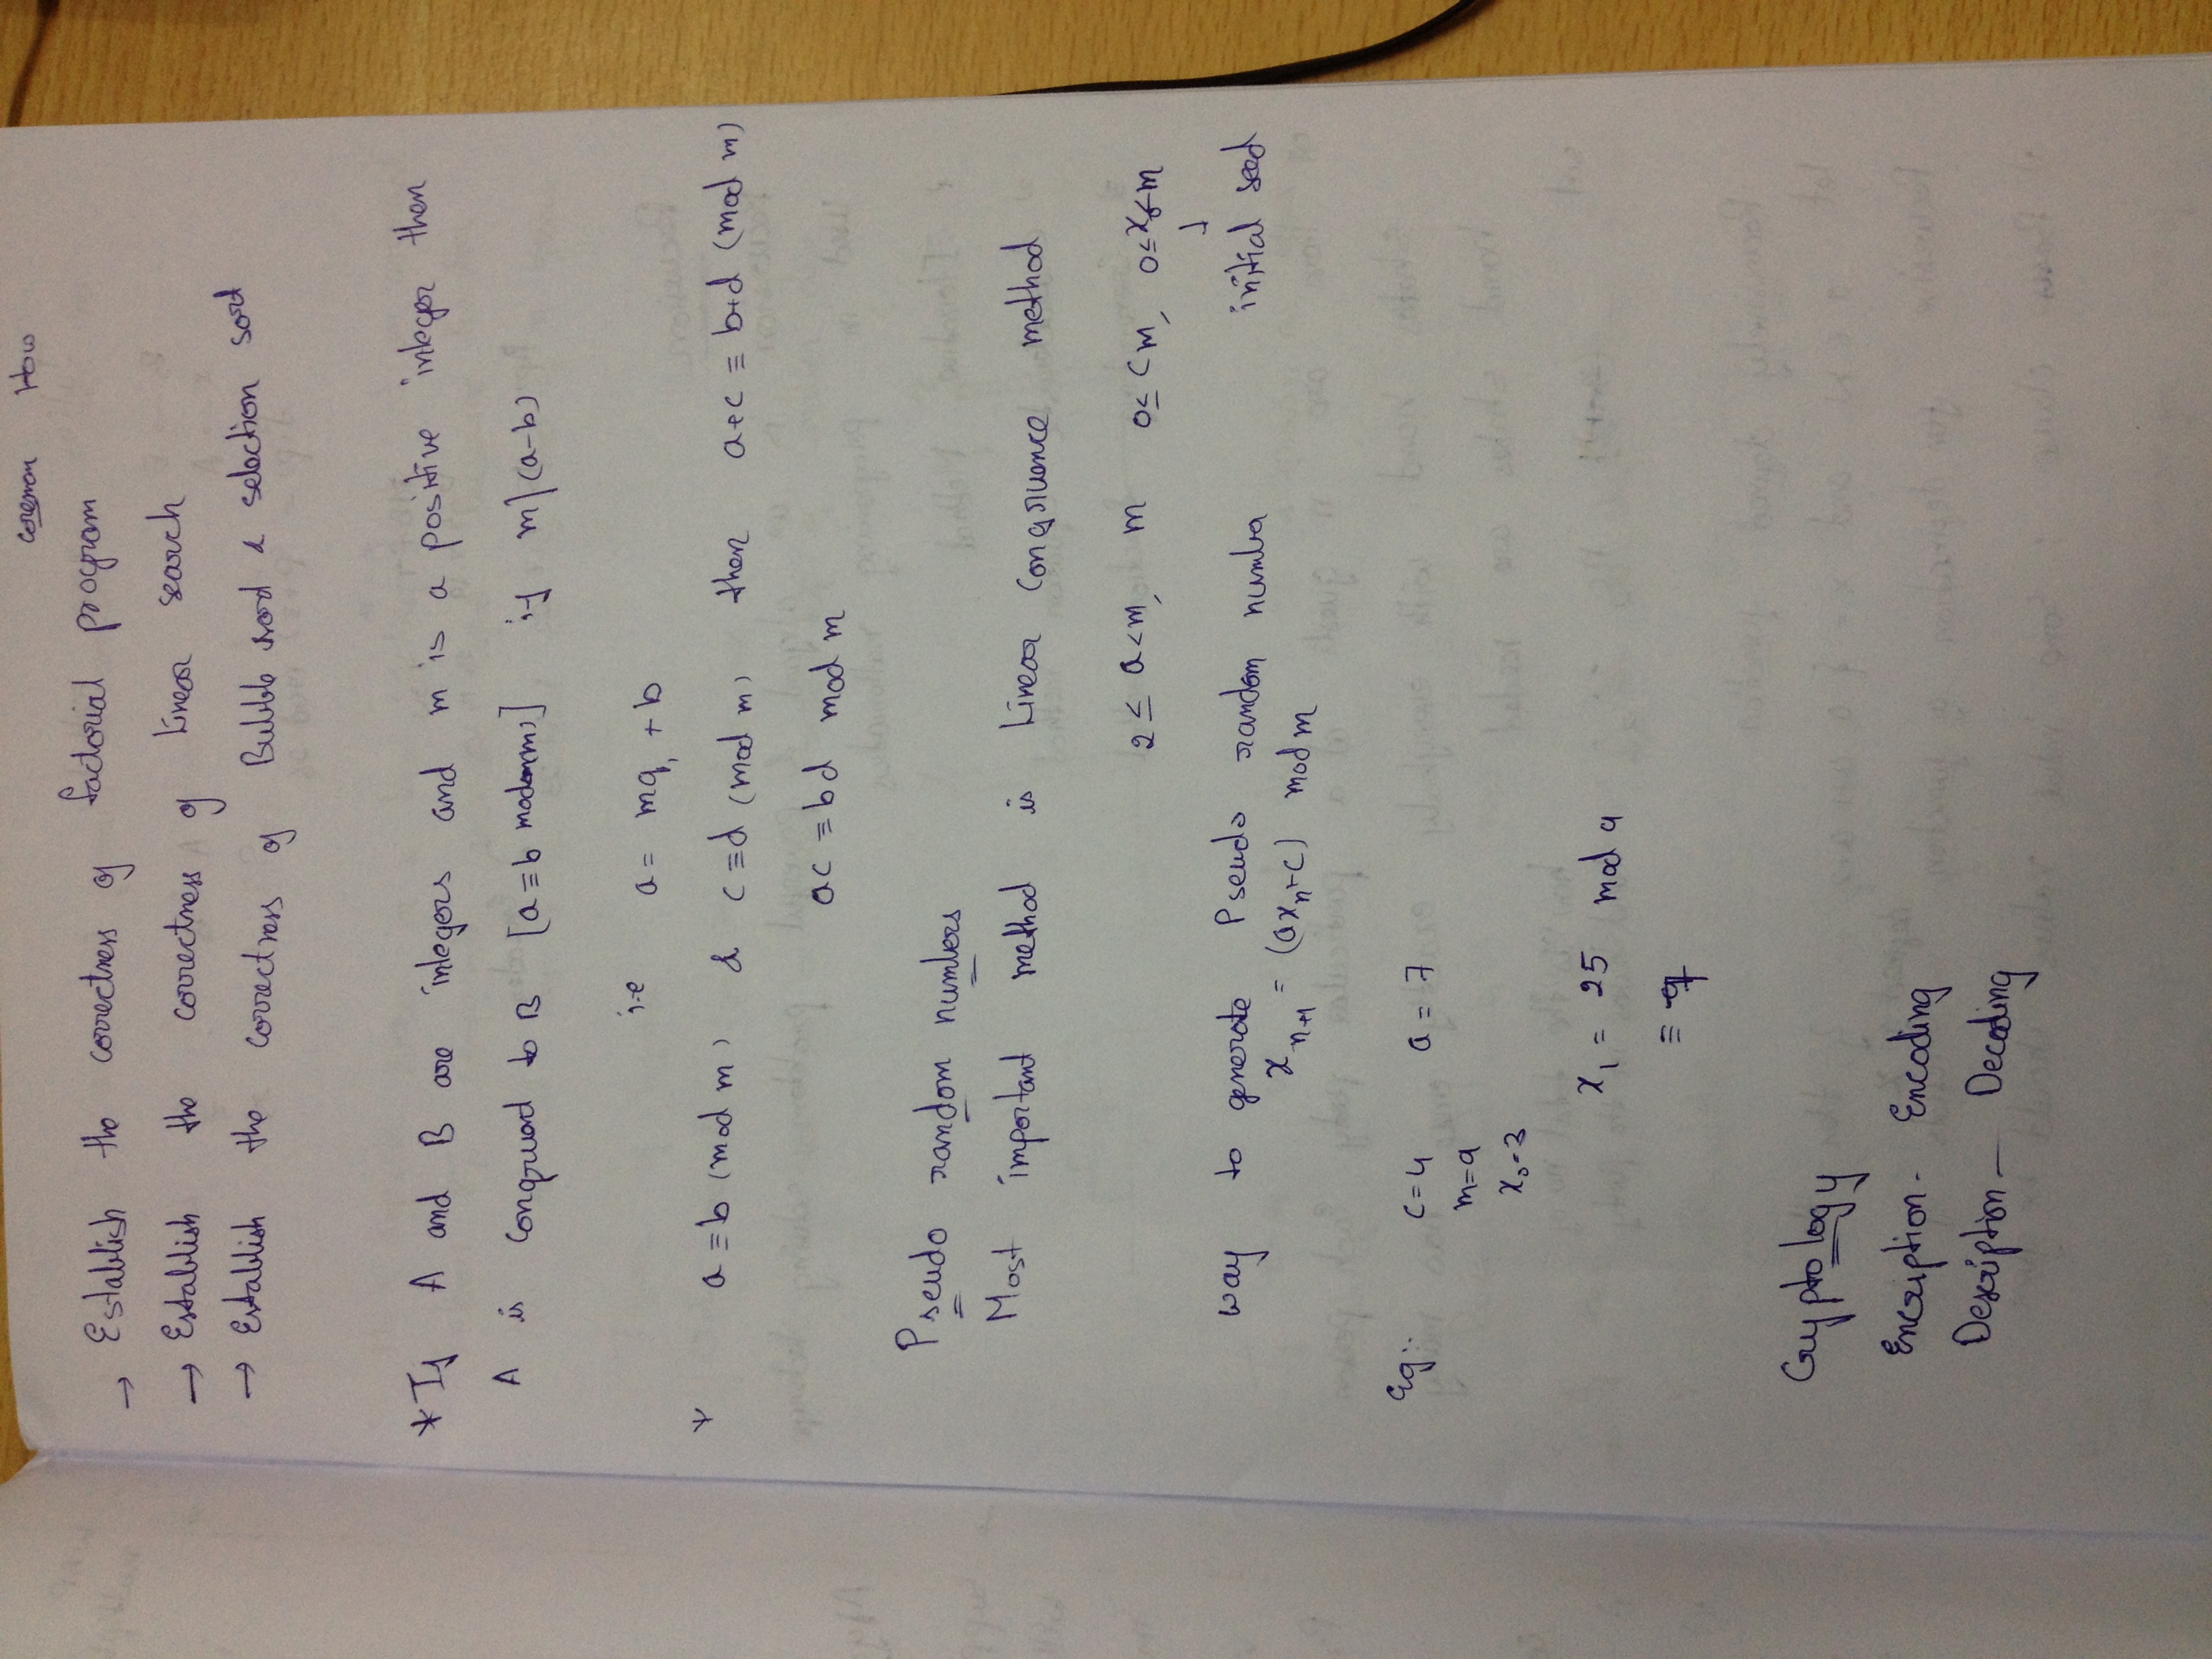 coremon How
→ Establish the correctness of factorial program
→ Establish the correctness of Linear search
→ Establish the correctness of Bubble sort & selection sort
* If A and B are integers and m is a positive integer then
A is congruent to B [a ≡ b mod m] if m|(a-b)
i.e a = mq + b
* a ≡ b (mod m) & c ≡ d (mod m) then a+c ≡ b+d (mod m)
ac ≡ bd mod m
Pseudo random numbers
Most important method is Linear Congruence method
2 ≤ a < m, m 0 ≤ c m, 0 ≤ x₀ < m
↓
way to generate Pseudo random number initial seed
xₙ₊₁ = (axₙ+c) mod m
Eg: c = 4 a = 7
m = 9
x₀ = 3
x₁ = 25 mod 9
≡ 7
Cryptology
Encription - Encoding
Description — Decoding